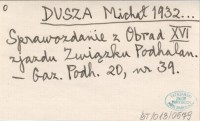 DUSZA Michał 1932...
Sprawozdanie z Obrad XVI
zjazdu Związku Podhalan.
— Gaz. Podh. 20, nr 39.